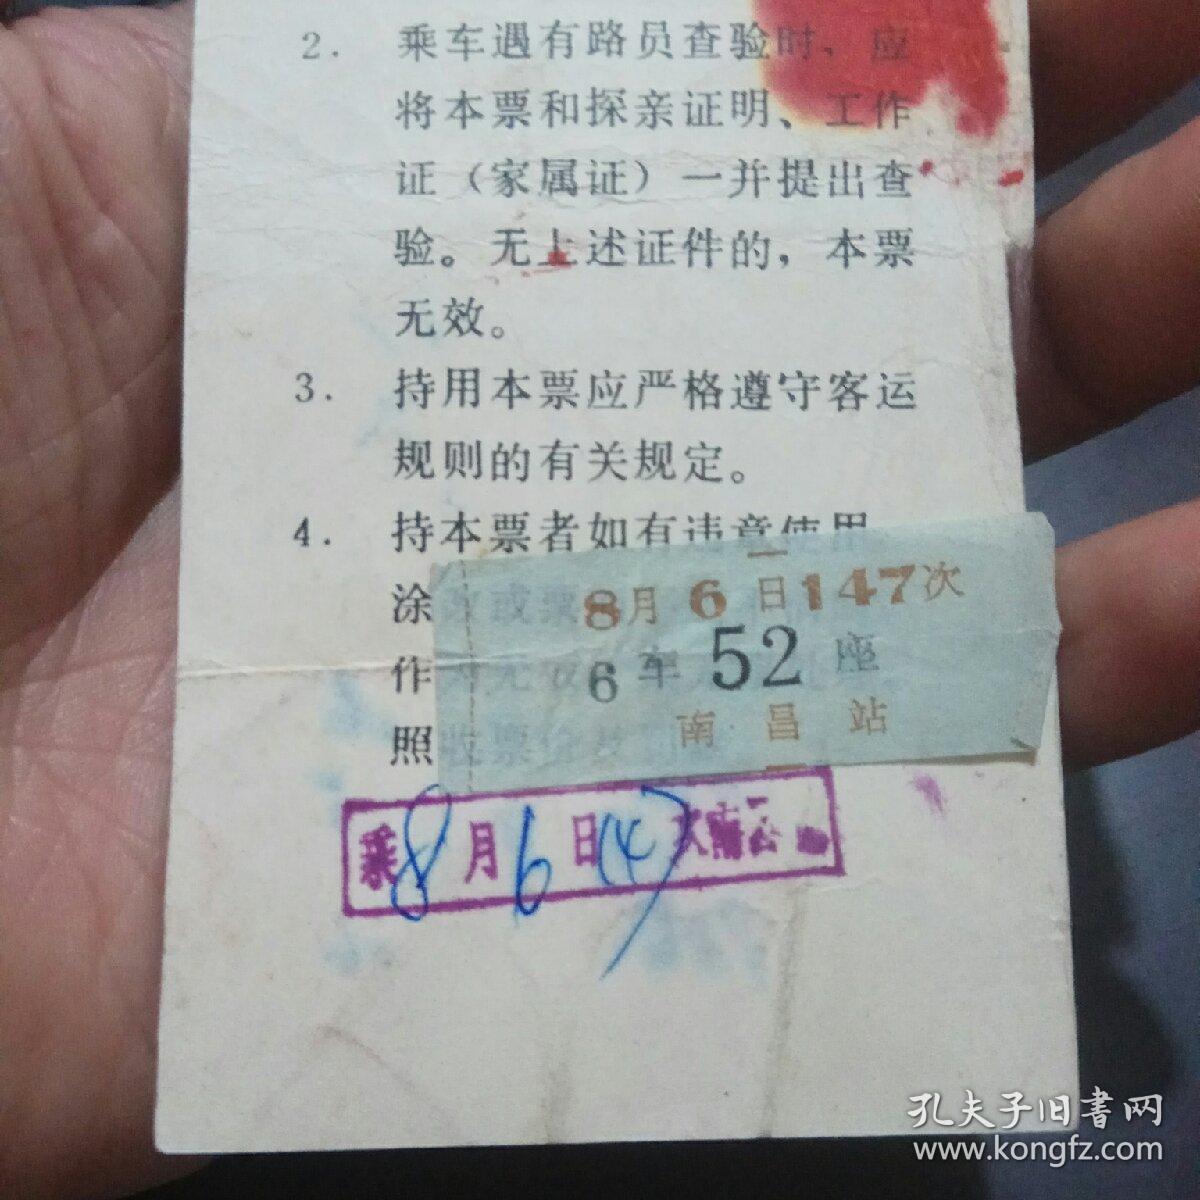 2. 乘车遇有路员查验时、应
将本票和探亲证明、工作
证（家属证）一并提出查
验。无上述证件的，本票
无效。
3. 持用本票应严格遵守客运
规则的有关规定。
4. 持本票者如有违章使用
涂改或票
作
照收票价
8月6日147次
6车52座
南昌站
乘8月6日147次
孔夫子旧書网
www.kongfz.com